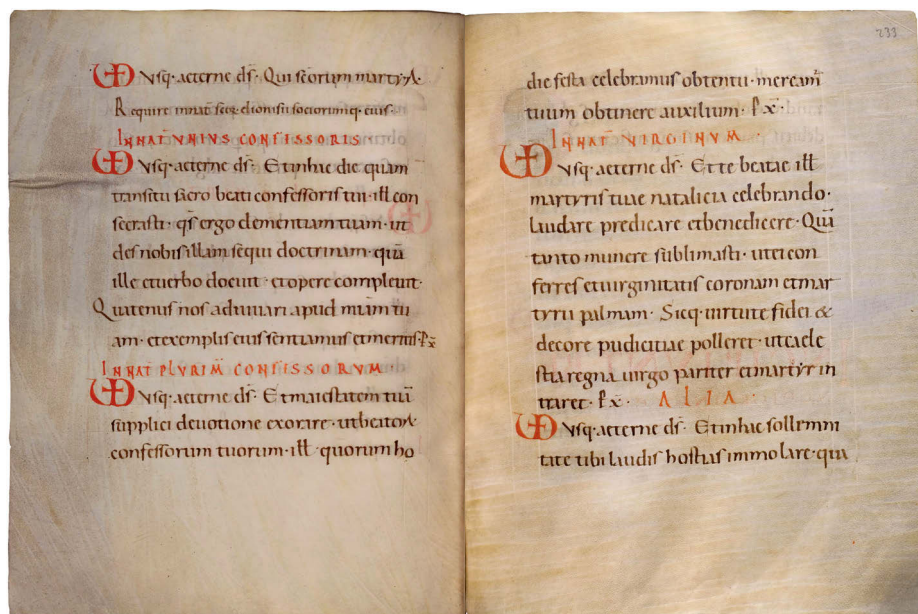 VD Vsq· aeterne ds̄· Qui scōrum martyrꝝ
Require in nat̄ scōꝝ dionisii sociorumq· eius·
IN NAT̄ VNIVS CONFESSORIS
VD Vsq· aeterne ds̄· Et in hac die quam
transitu sacro beati confessoris tui· ill̄ con
secrasti· qs̄ ergo clementiam tuam· ut
des nobis illam sequi doctrinam· quā
ille et uerbo docuit· et opere compleuit·
Quatenus nos adiuuari apud mīam tu
am· et exemplis eius sentiamus et meritis· P x̄
IN NAT̄ PLVRIM̄ CONFESSORVM
VD Vsq· aeterne ds̄· Et maiestatem tuā
supplici deuotione exorare· ut beatoꝝ
confessorum tuorum· ill̄· quorum ho
233
die festa celebramus obtentu· meream̄
tuum obtinere auxilium· P x̄·
IN NAT̄ VIRGINVM·
VD Vsq· aeterne ds̄· Et te beatae ill̄
martyris tuae natalicia celebrando·
laudare predicare et benedicere· Quā
tanto munere sublimasti· ut ei con
ferres et uirginitatis coronam et mar
tyrii palmam· Sicq· uirtute fidei &
decore pudicitiae polleret· ut caele
stia regna uirgo pariter et martyr in
traret· P x̄· ALIA·
VD Vsq· aeterne ds̄· Et in hac sollemni
tate tibi laudis hostias immolare· qua